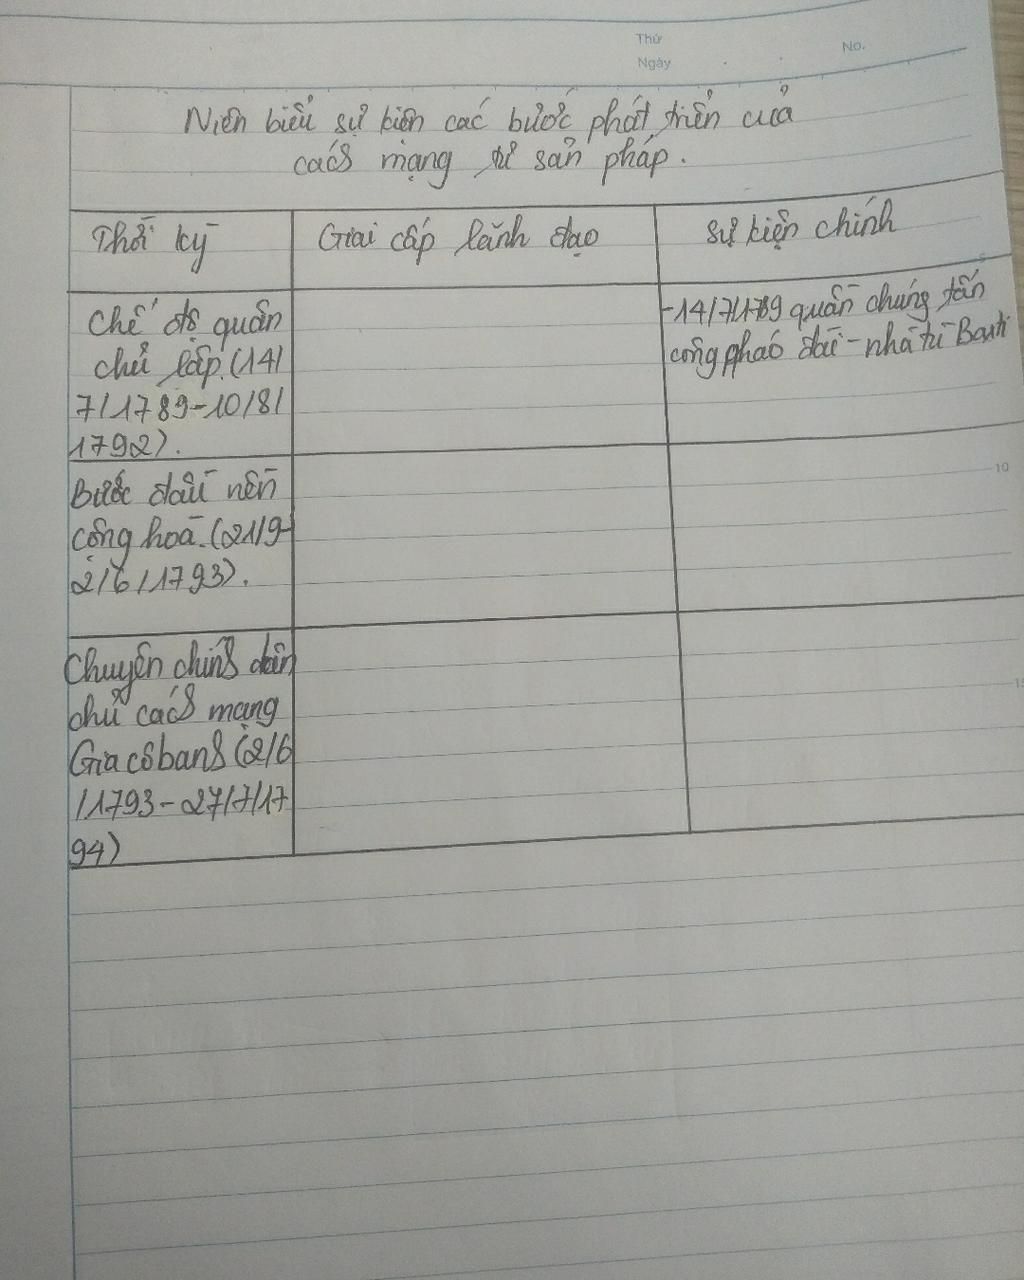 Thứ
Ngày
No.
Niên biểu sự kiện các bước phát triển của
cách mạng tư sản pháp.
Thời kỳ
Giai cấp lãnh đạo
Sự kiện chính
Chế độ quân
chủ lập. (14/
7/1789-10/8/
1792).
-14/7/1789 quần chúng tấn
công pháo đài - nhà tù Baxti
Bước đầu nền
cộng hoà. (21/9-
2/6/1793).
Chuyên chính dân
chủ cách mạng
Giacôbanh (2/6
/1793-27/7/17
94)
10